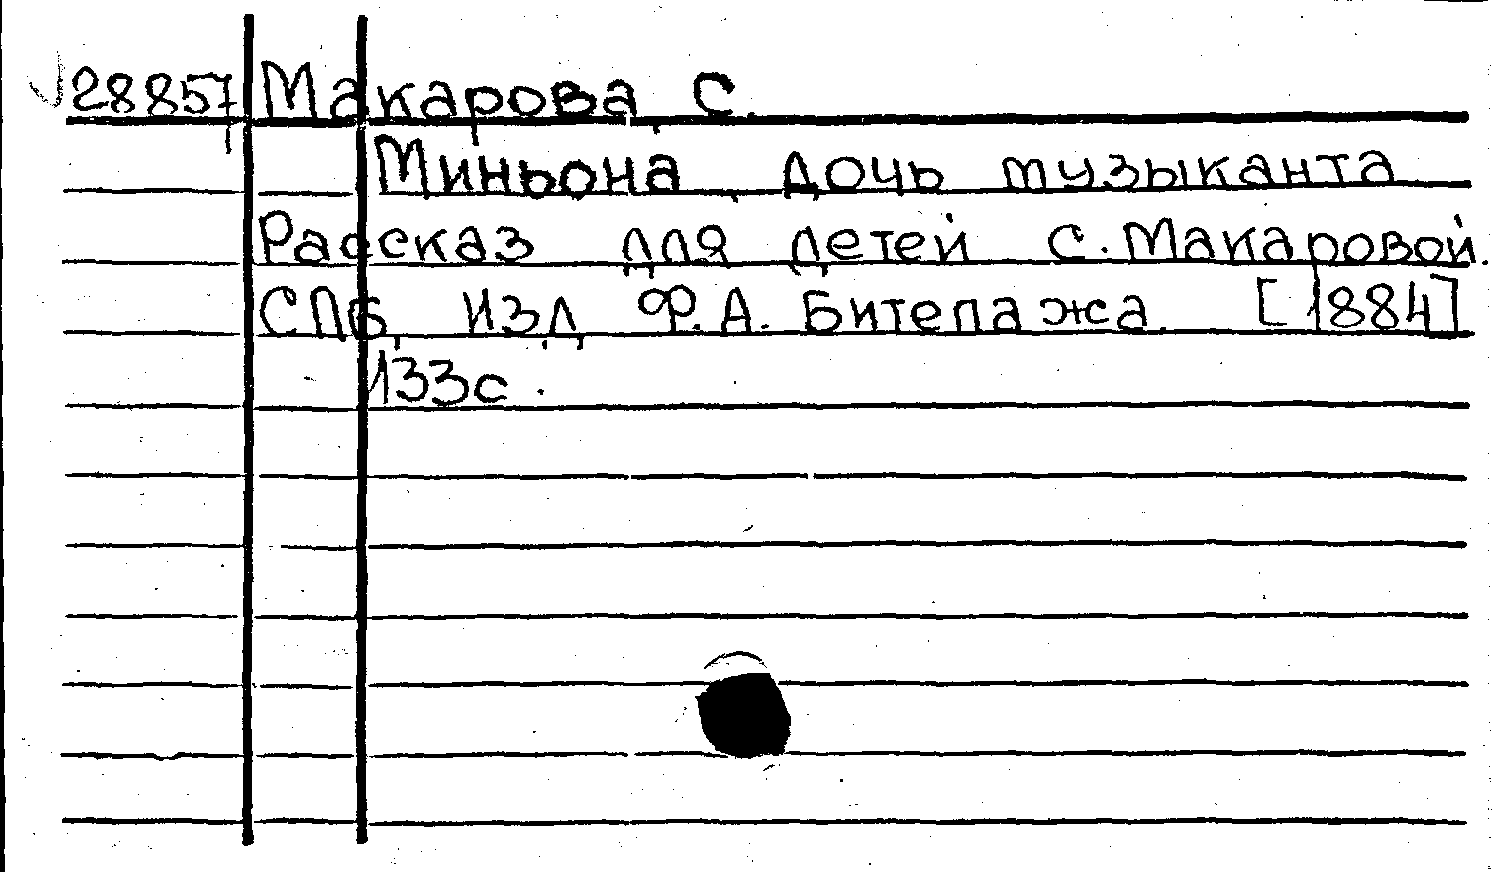 28857 Макарова, С.
Миньона, дочь музыканта
Рассказ для детей С. Макаровой.
СПб, изд. Ф.А. Битепажа. [1884]
133с.